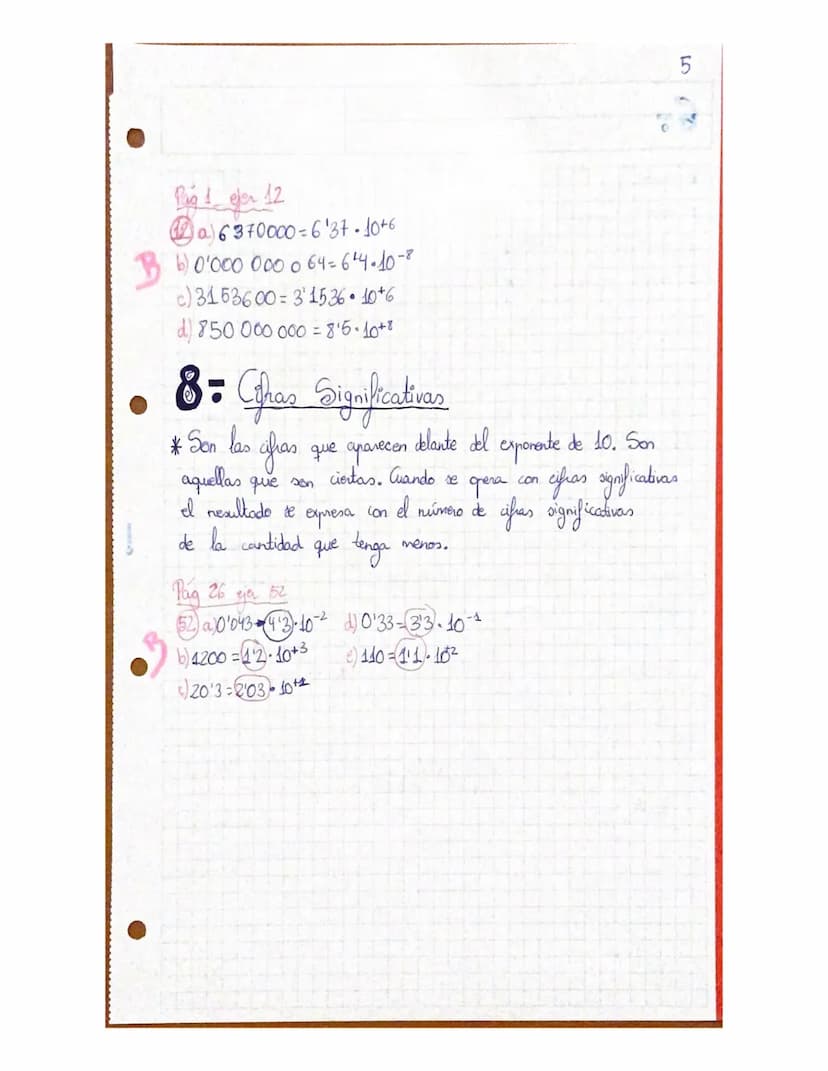 5
Pág 1 ejer 12
12 a) 6370000 = 6'37 · 10+6
B b) 0'000 000 0 64 = 6'4 · 10-8
c) 3153600 = 3'1536 · 10+6
d) 850 000 000 = 8'5 · 10+8
8= Cifras Significativas
* Son las cifras que aparecen delante del exponente de 10. Son
aquellas que son ciertas. Cuando se opera con cifras significativas
el resultado se expresa con el número de cifras significativas
de la cantidad que tenga menos.
Pág 26 ejer 52
52 a) 0'043 = 4'3 · 10-2 d) 0'33 = 3'3 · 10-1
B b) 1200 = 1'2 · 10+3 e) 110 = 1'1 · 10+2
c) 20'3 = 2'03 · 10+1